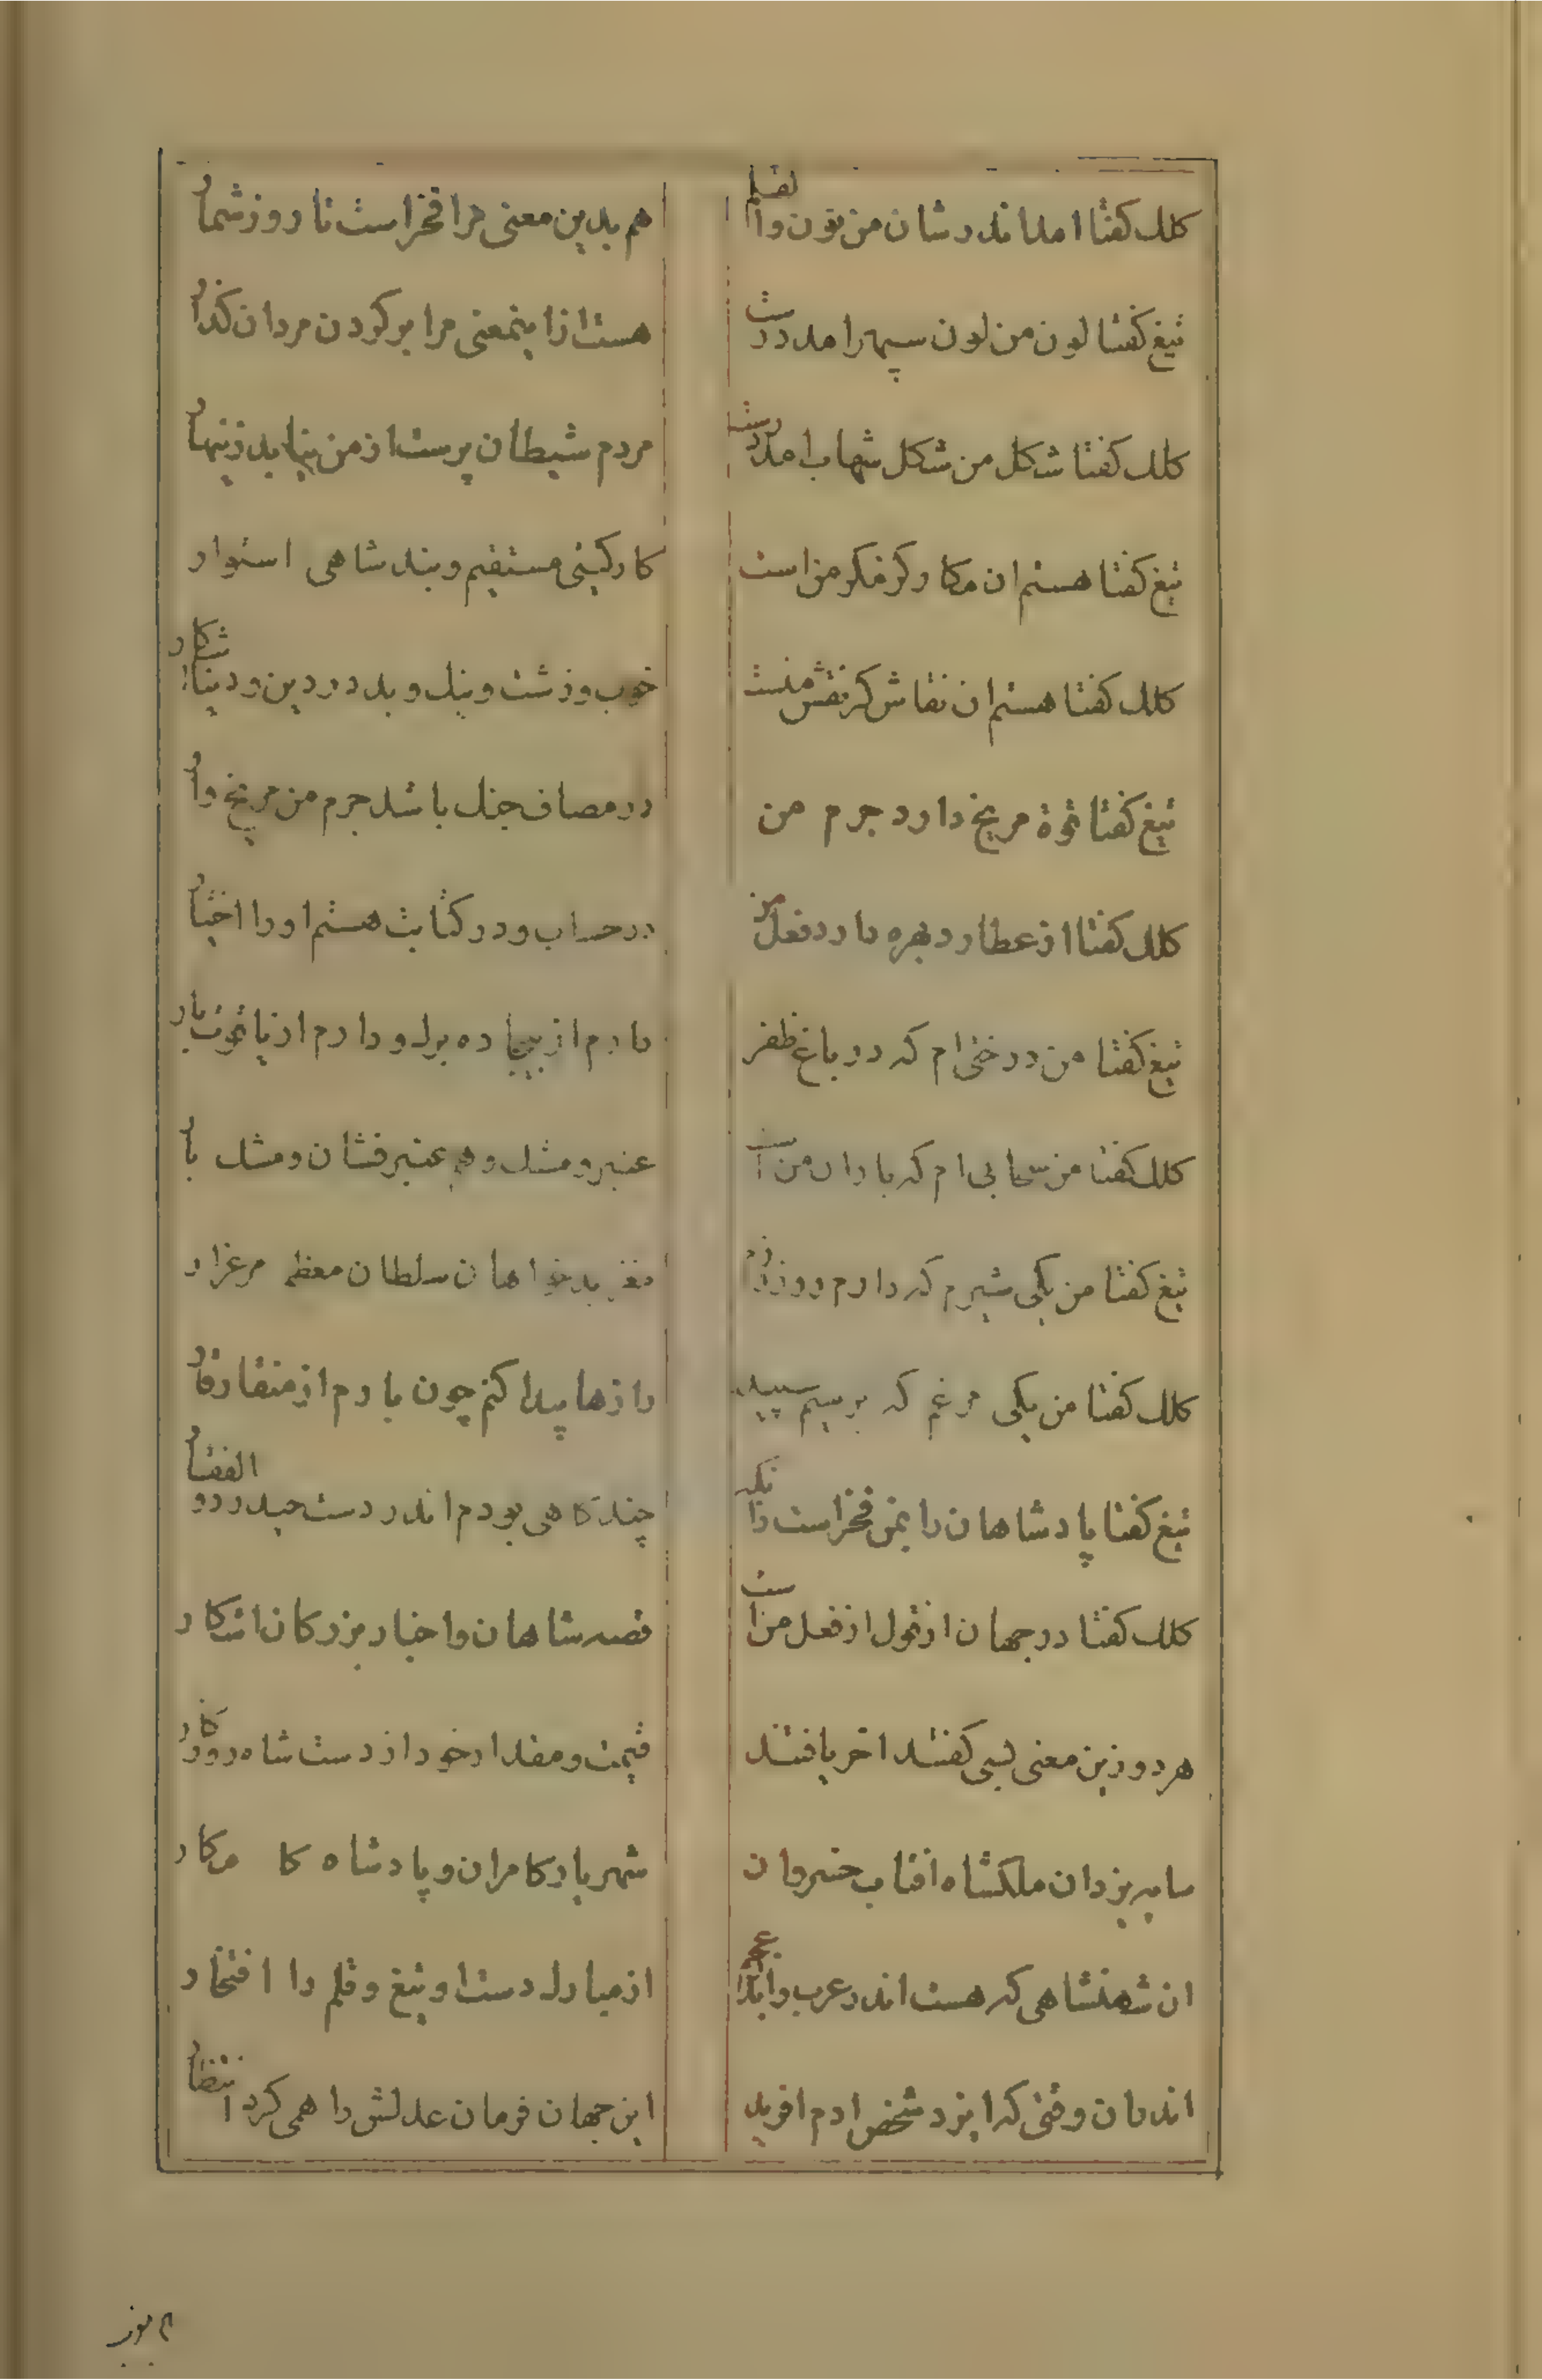 کلک کفتا امد اندر شان من نون والقلم هم بدین معنی مرا فخر است تا روز شمار
تیغ کفتا لون من لون سپهر امد درست هست از اینمعنی مرا بر کردن مردان کذار
کلک کفتا شکل من شکل شهاب امد درست مردم شیطان پرست از من نیابد زینهار
تیغ کفتا هستم ان مکار کز مکر من است کار کیتی مستقیم و بند شاهی استوار
کلک کفتا هستم ان نقاش کز نقش منست خوب و زشت و نیک و بد در دین و دنیا اشکار
تیغ کفتا قوة مریخ دارد جرم من در مصاف جنک باشد جرم من مریخ وار
کلک کفتا از عطارد بهره دارد فعل من در حساب و در کتابت هستم او را اختیار
تیغ کفتا من درختی ام که در باغ ظفر دارم از بیجاده برک و دارم از یاقوت بار
کلک کفتا من سحابی ام که باران من است عنبر و مشک و هم عنبر فشان و مشک بار
تیغ کفتا من یکی شیرم که دارم روز رزم مغز بدخواهان سلطان معظم مرغزار
کلک کفتا من یکی مرغم که بر سیم سپید رازها پیدا کنم چون بارم از منقار قار
تیغ کفتا پادشاهان را بمن فخر است زانکه چند کاهی بودم اندر دست حیدر ذو الفقار
کلک کفتا در جهان از قول از فعل من است قصه شاهان و اخبار بزرکان اشکار
هر دو زین معنی بسی کفتند اخر یافتند قیمت و مقدار خود از دست شاه روزکار
سایه یزدان ملکشاه افتاب خسروان شهریار کامران و پادشاه کامکار
ان شهنشاهی که هست اندر عرب و اندر عجم از مبارک دست او تیغ و قلم را افتخار
اندران وقتی که ایزد شخص ادم افرید این جهان فرمان عدلش را همی کرد انتظار